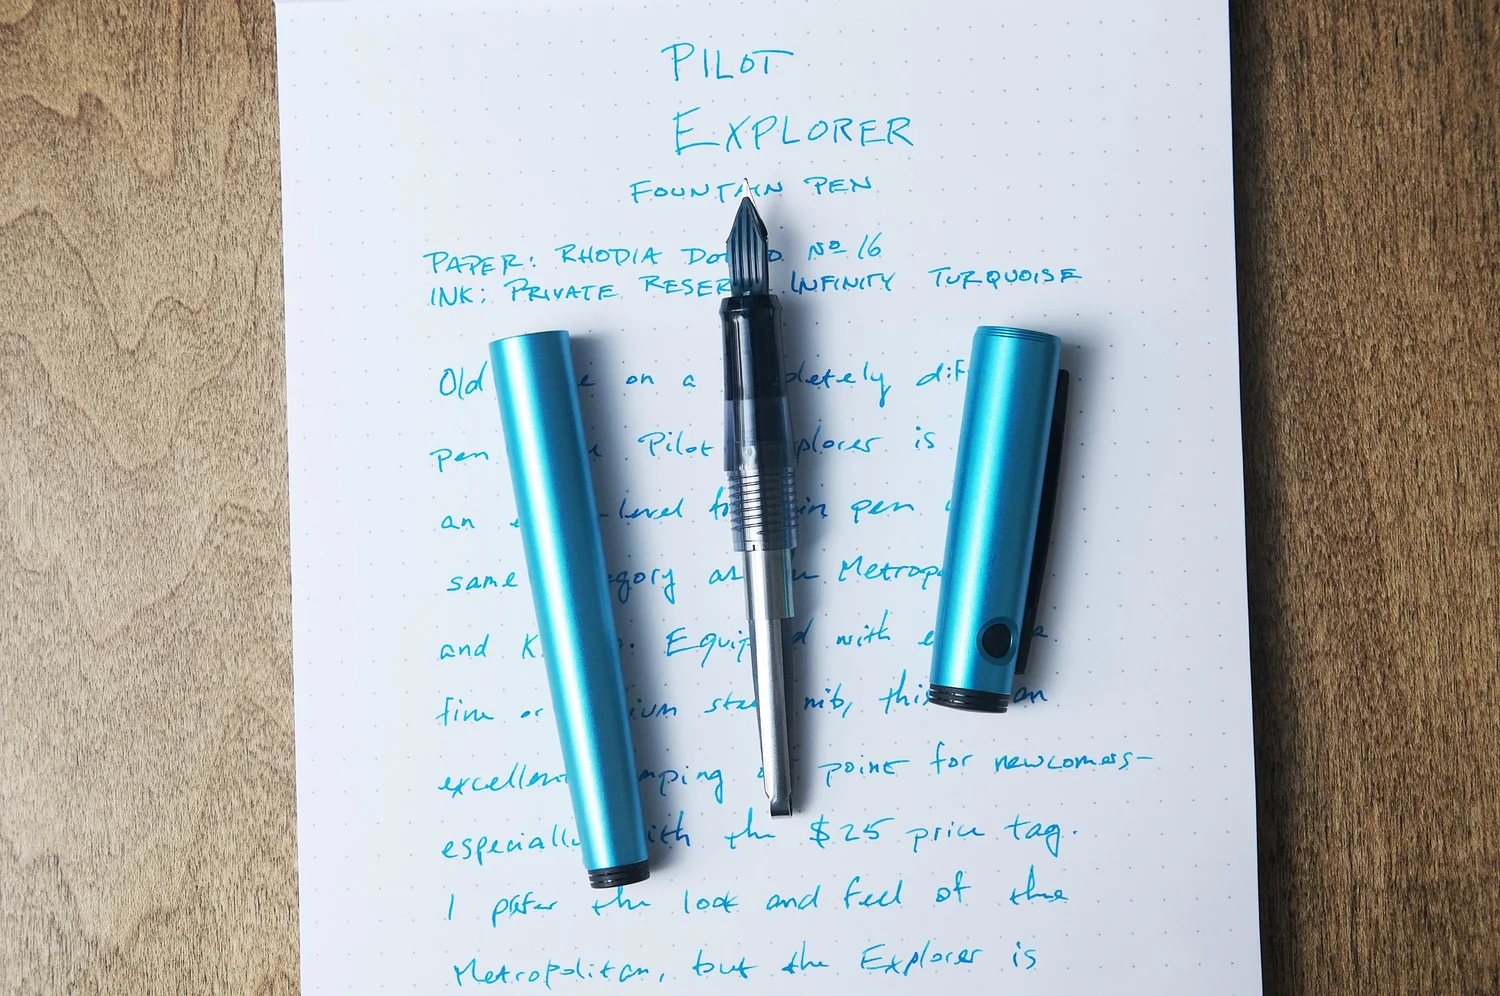 PILOT
EXPLORER
FOUNTAIN PEN
PAPER: RHODIA No 16
INK: PRIVATE RESERVE INFINITY TURQUOISE
Old on a
pen Pilot Explorer is
an level pen
same category as Metropolitan
and Equipped with
fine or medium nib, this an
excellent jumping off point for newcomers–
especially with the $25 price tag.
I prefer the look and feel of the
Metropolitan, but the Explorer is